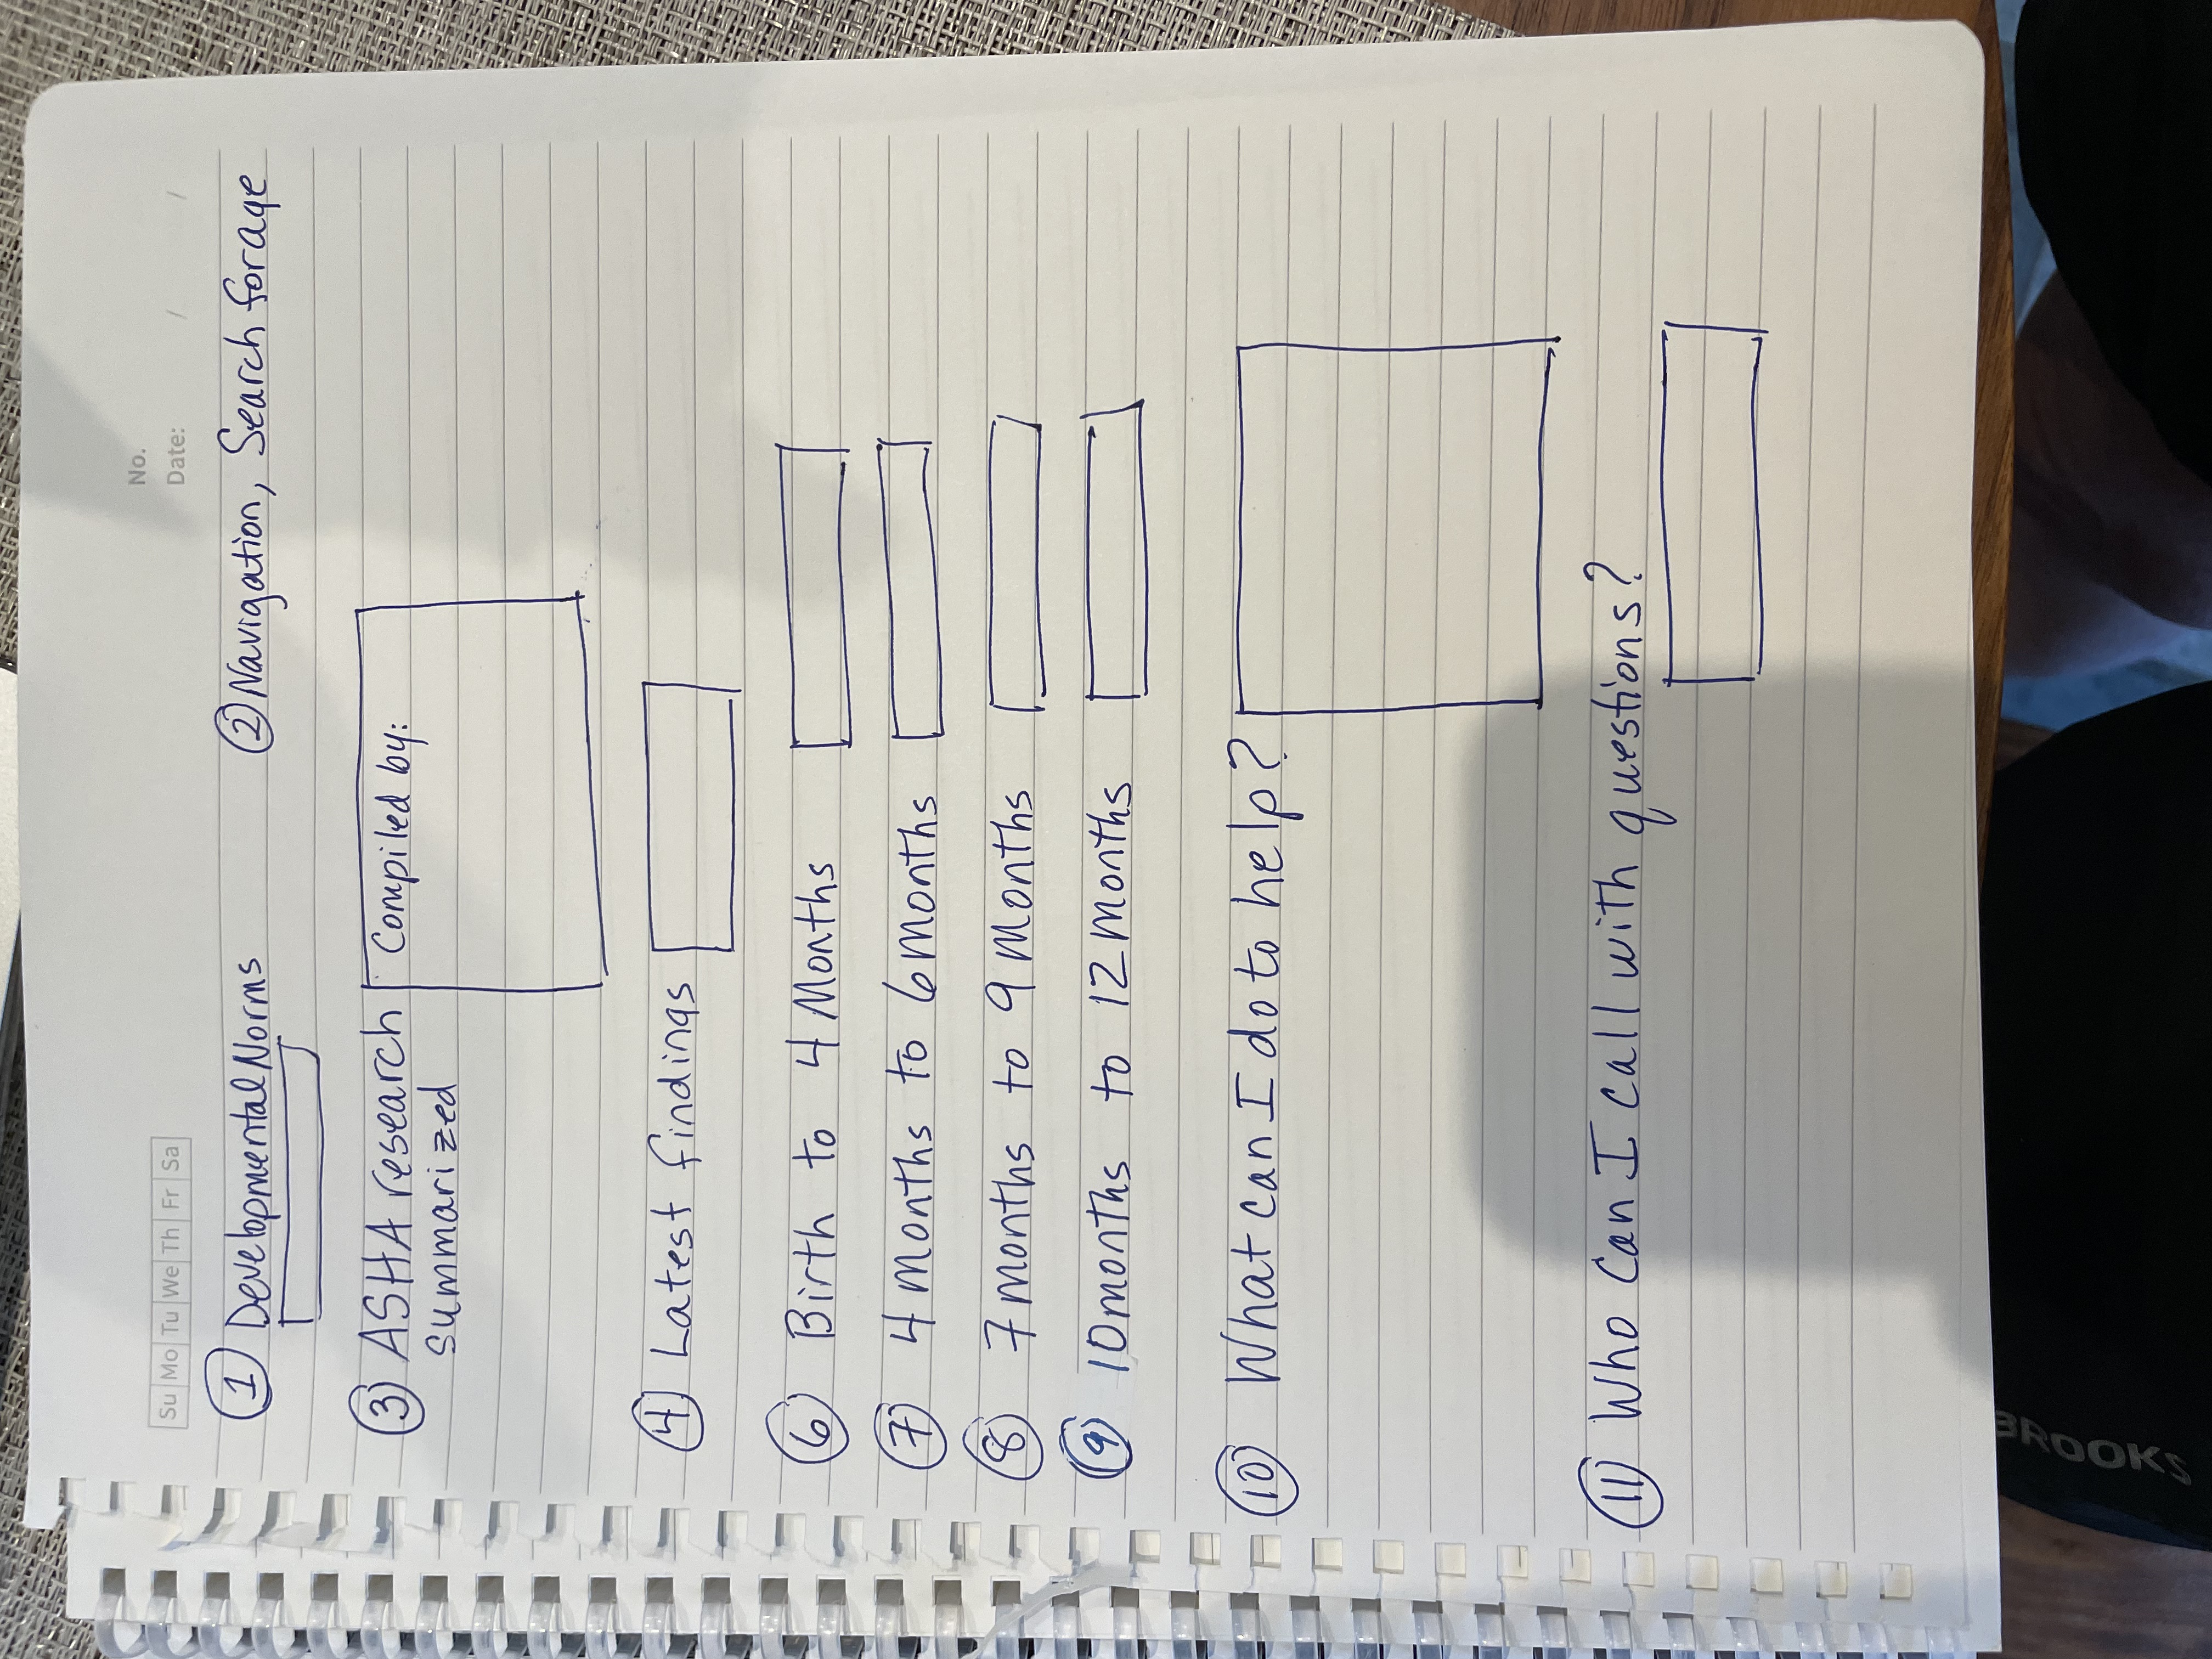 No.
Su Mo Tu We Th Fr Sa
Date: / /
1 Developmental Norms
2 Navigation, Search for age
3 ASHA research
summarized
Compiled by:
4 Latest findings
6 Birth to 4 Months
7 4 months to 6 months
8 7 months to 9 Months
9 10 months to 12 Months
10 What can I do to help?
11 Who Can I call with questions?
BROOKS